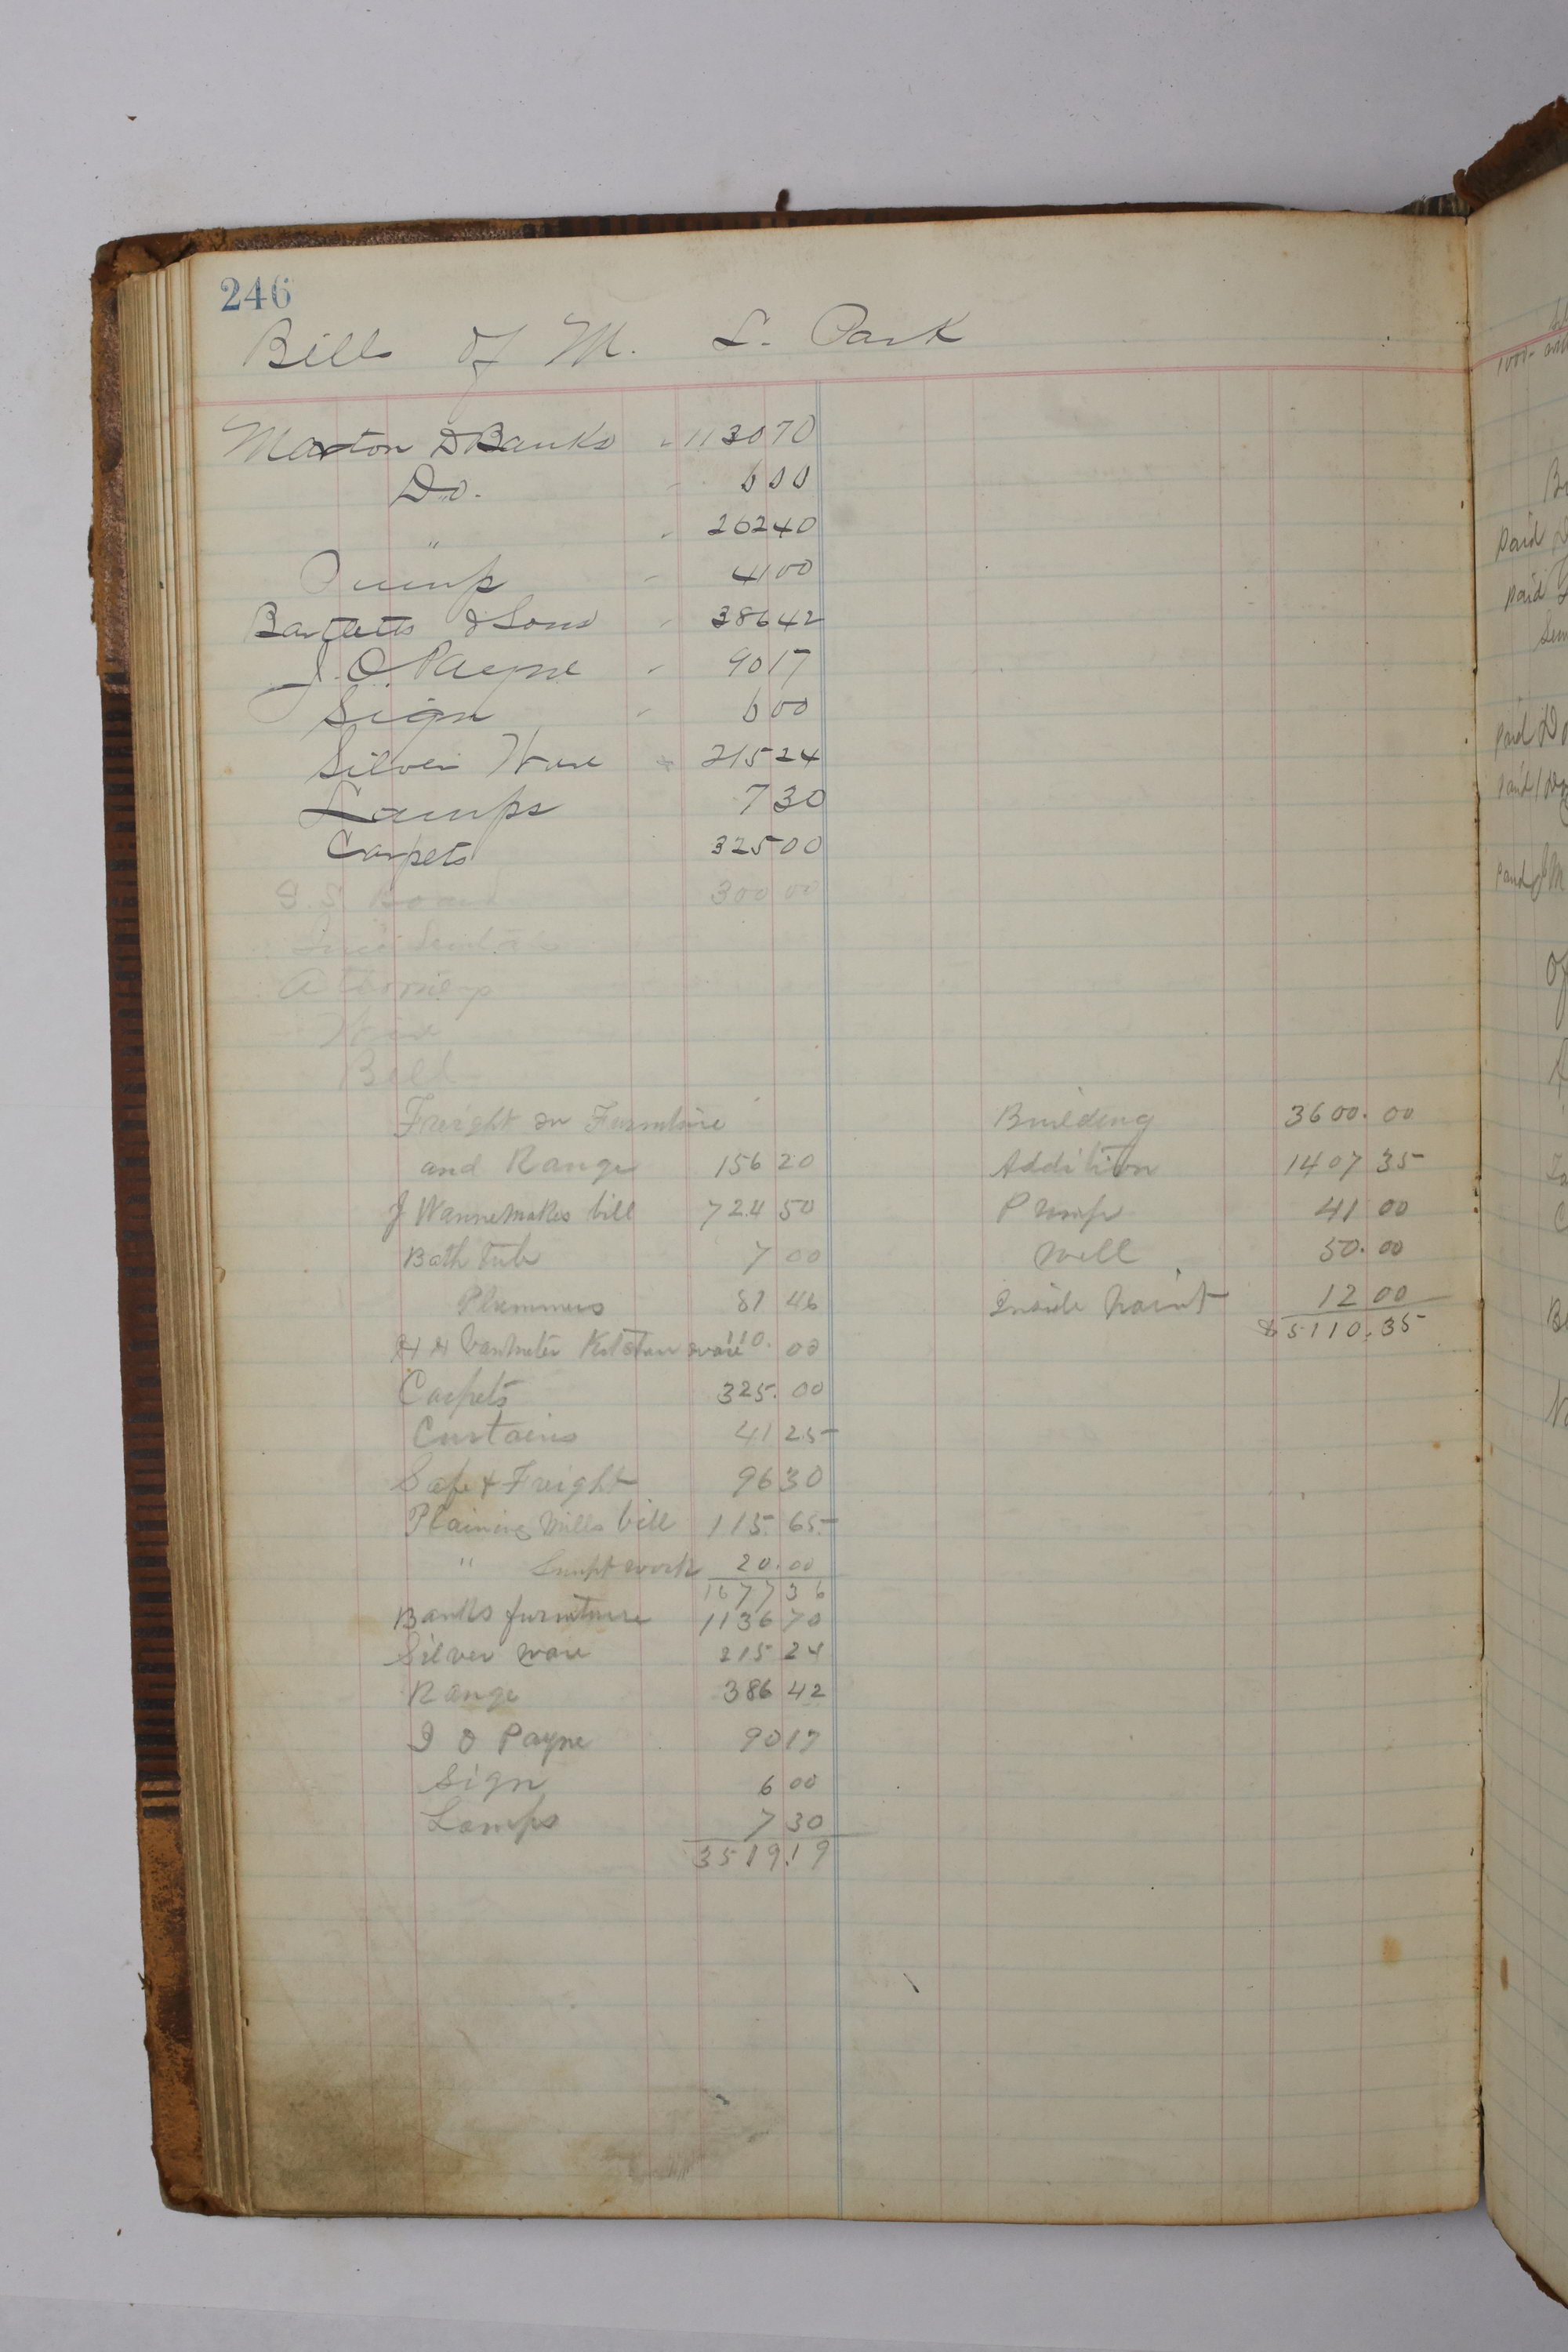 246
Bills of M. L. Park
Marton & Banks - 1130 70
Do. - 6 00
" - 262 40
Pump - 41 00
Bartletts & Sons - 386 42
J. O. Payne - 90 17
Sign - 6 00
Silver Ware 215 24
Lamps 7 30
Carpets 325 00
S. S. 300 00
Attorney
Bell
Freight on Furniture
and Range 156 20
J Wannemakes bill 724 50
Bath tub 7 00
Plummers 81 46
H H Vanmeter Kitchen ware 110. 00
Carpets 325. 00
Curtains 41 25
Safe & Freight 96 30
Plaining Mills bill 115. 65
" work 20. 00
1677 36
Banks furniture 1136 70
Silver ware 215 24
Range 386 42
J O Payne 90 17
Sign 6 00
Lamps 7 30
3519.19
Building 3600. 00
Addition 1407 35
Pump 41 00
Well 50. 00
Inside Paint 12 00
$5110.35
paid
paid
paid
paid